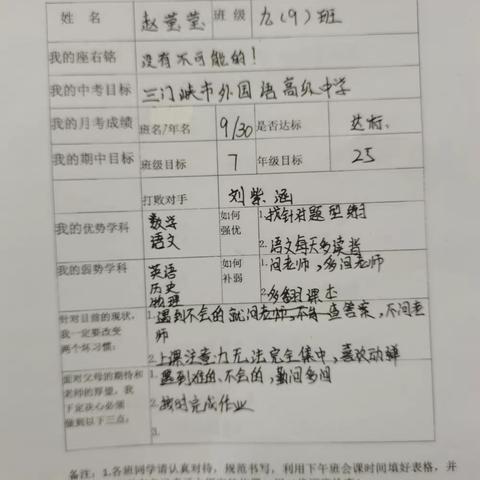 姓 名 赵莹莹 班 级 九(9)班
我的座右铭 没有不可能的!
我的中考目标 三门峡市外国语高级中学
我的月考成绩 班名/年名 9/30 是否达标 达标.
我的期中目标 班级目标 7 年级目标 25
打败对手 刘紫涵
我的优势学科 数学 语文 如何强优 1.找针对题型练习
2.语文每天多读背
我的弱势学科 英语 历史 物理 如何补弱 1.问老师,多问老师
2.多翻课本
针对目前的现状,
我一定要改变
两个坏习惯:
1.遇到不会的就问老师,不 查答案,不问老师
2.上课注意力无法完全集中,喜欢动弹
面对父母的期待和
老师的厚望,我
下定决心必须
做到以下三点:
1.遇到难的、不会的,勤问多问
2.按时完成作业
3.
备注:1.各班同学请认真对待,规范书写,利用下午班会课时间填好表格,并